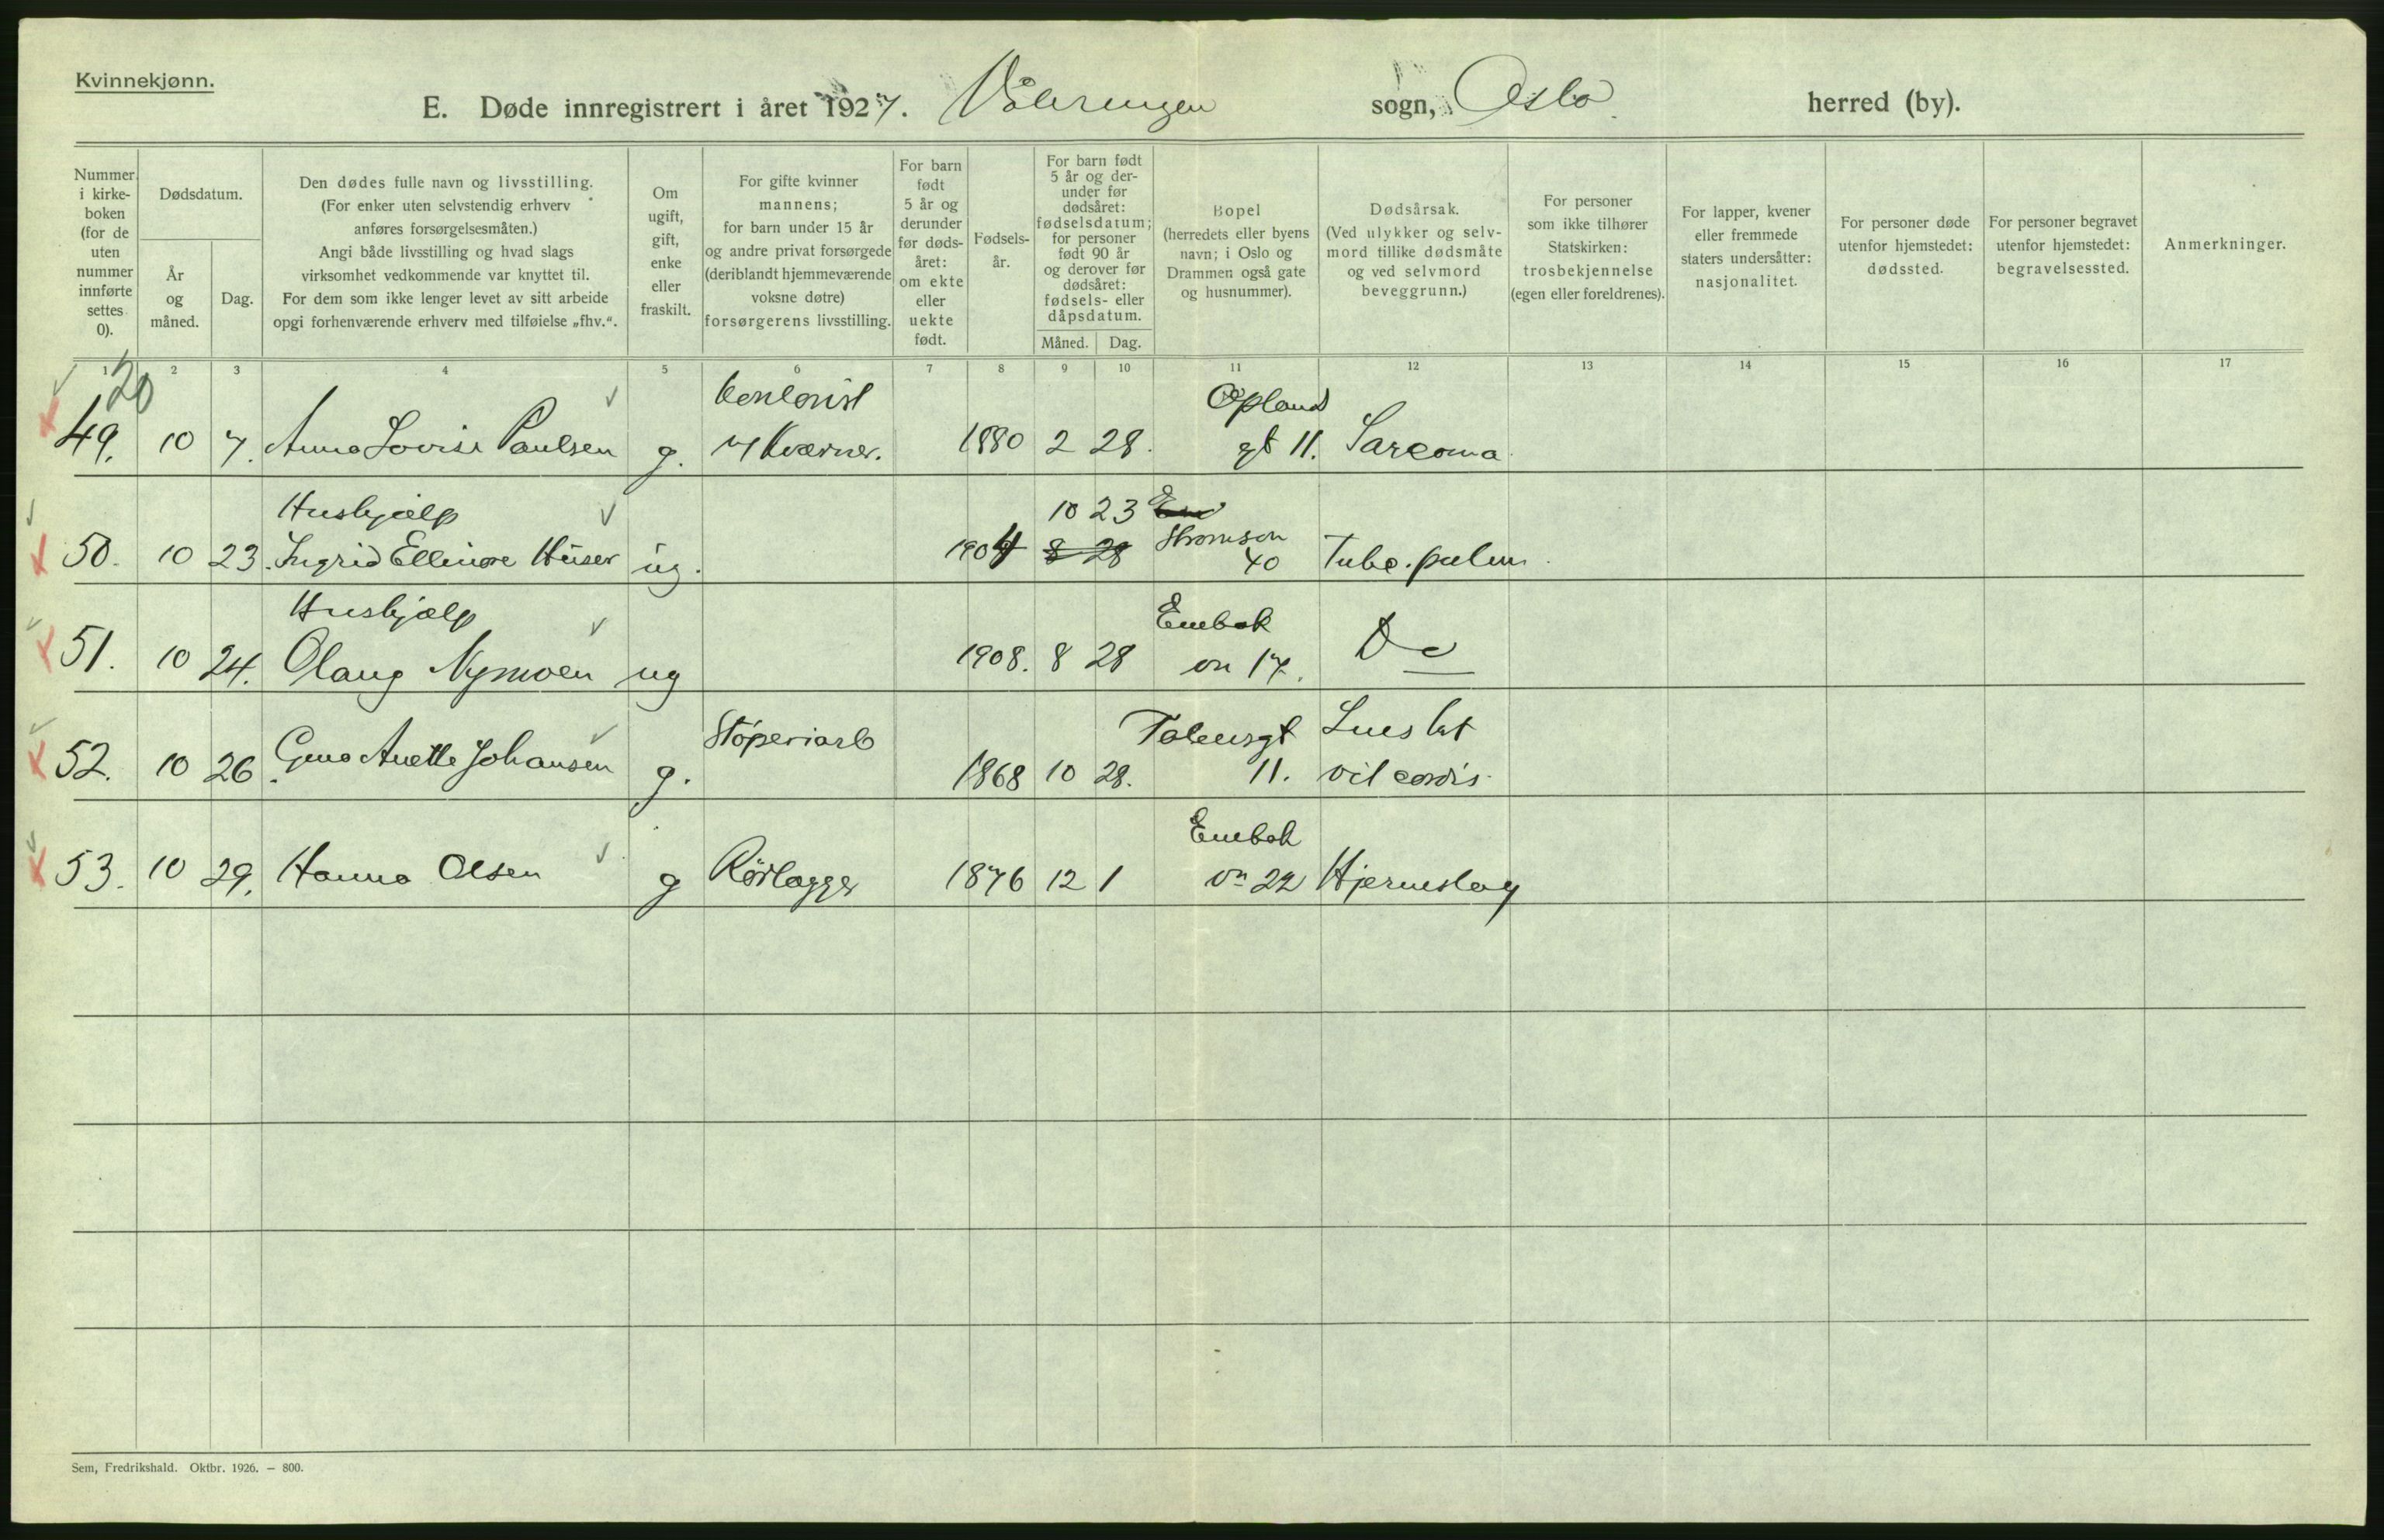 Kvinnekjønn.
E. Døde innregistrert i året 1927. Vålerengen sogn, Oslo herred (by).
Nummer i kirke-boken (for de uten nummer innførte settes 0).
Dødsdatum.
År og måned.
Dag.
Den dødes fulle navn og livsstilling.
(For enker uten selvstendig erhverv
anføres forsørgelsesmåten.)
Angi både livsstilling og hvad slags
virksomhet vedkommende var knyttet til.
For dem som ikke lenger levet av sitt arbeide
opgi forhenværende erhverv med tilføielse „fhv.“.
Om ugift, gift, enke eller fraskilt.
For gifte kvinner
mannens;
for barn under 15 år
og andre privat forsørgede
(deriblandt hjemmeværende
voksne døtre)
forsørgerens livsstilling.
For barn født 5 år og derunder før døds-året: om ekte eller uekte født.
Fødsels-år.
For barn født
5 år og der-
under før
dødsåret:
fødselsdatum;
for personer
født 90 år
og derover før
dødsåret:
fødsels- eller
dåpsdatum.
Måned. Dag.
Bopel
(herredets eller byens
navn; i Oslo og
Drammen også gate
og husnummer).
Dødsårsak.
(Ved ulykker og selv-
mord tillike dødsmåte
og ved selvmord
beveggrunn.)
For personer
som ikke tilhører
Statskirken:
trosbekjennelse
(egen eller foreldrenes).
For lapper, kvener
eller fremmede
staters undersåtter:
nasjonalitet.
For personer døde
utenfor hjemstedet:
dødssted.
For personer begravet
utenfor hjemstedet:
begravelsessted.
Anmerkninger.
1 2 3 4 5 6 7 8 9 10 11 12 13 14 15 16 17
20
Kontorist Opland
49. 10 7. Anna Lovise Paulsen g. v/ Kværner. 1880 2 28. gt 11. Sarcoma
Hushjælp 10 23 Strømsvn
50. 10 23. Ingrid Ellinore Huser ug. 1904 8 28 40 Tube. pulm
Hushjælp Enebak
51. 10 24. Olaug Nymoen ug 1908. 8 28 vn 17. Do
Støperiarb Tøiensgt Lues lat
52. 10 26. Gina Anette Johansen g. 1868 10 28. 11. vit cordis
Enebak
53. 10 29. Hanna Olsen g Rørlægger 1876 12 1 vn 22 Hjerneslag
Sem, Fredrikshald. Oktbr. 1926. — 800.